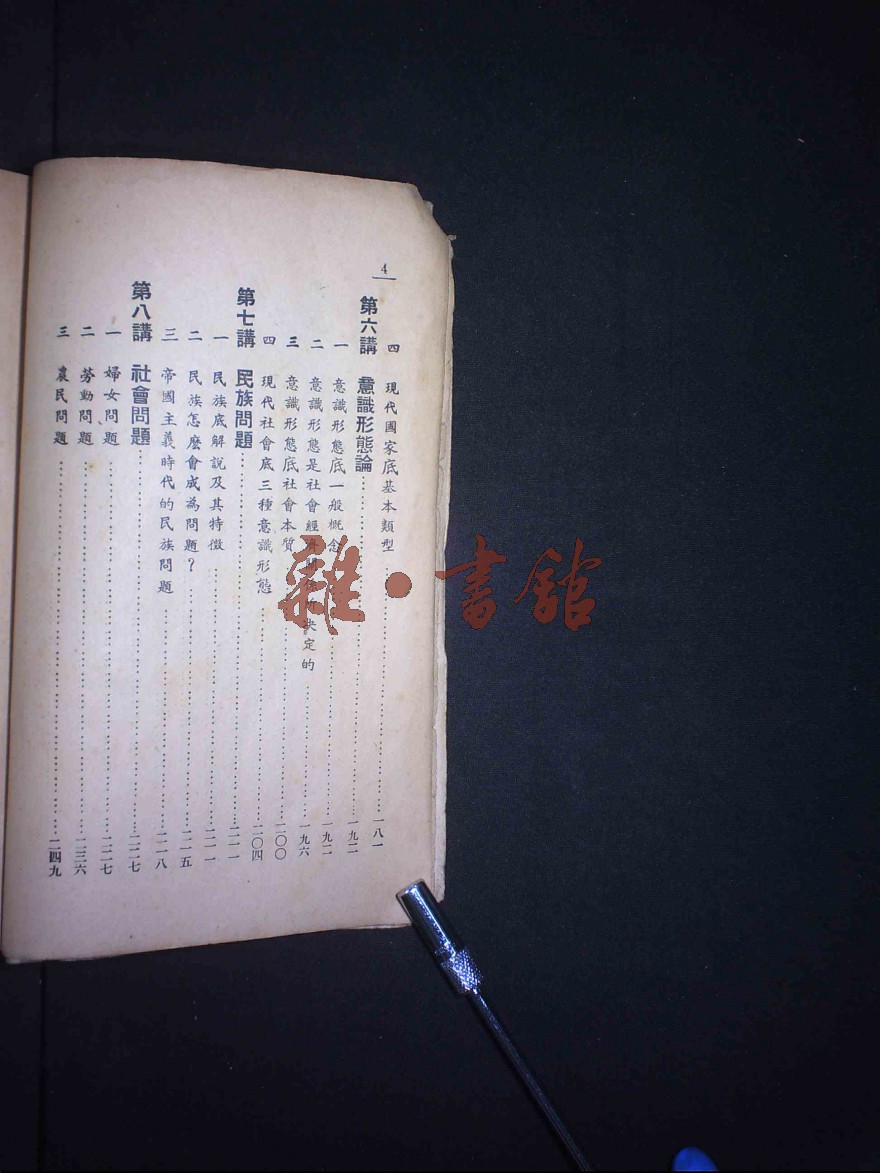 4
四 現代國家底基本類型……一八一
第六講 意識形態論……一九二
一 意識形態底一般概念……一九二
二 意識形態是社會經濟 決定的……一九六
三 意識形態底社會本質……二〇〇
四 現代社會底三種意識形態……二〇四
第七講 民族問題……二一一
一 民族底解說及其特徵……二一一
二 民族怎麼會成為問題？……二一五
三 帝國主義時代的民族問題……二一八
第八講 社會問題……二二七
一 婦女問題……二二七
二 勞動問題……二三六
三 農民問題……二四九
雜·書館